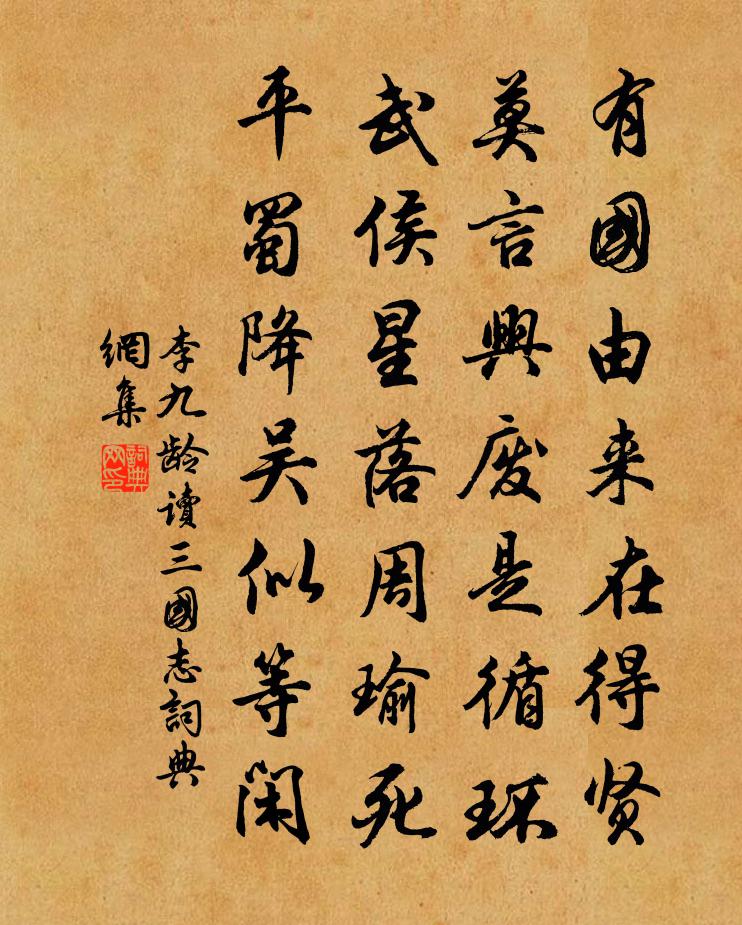 有國由来在得贤
莫言興废是循环
武侯星落周瑜死
平蜀降吴似等闲
李九龄讀三國志詞典
網集
詞典
网印